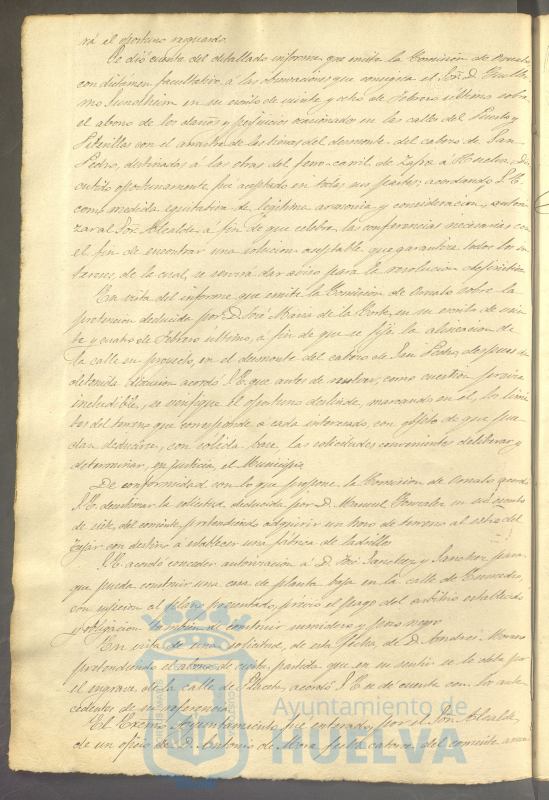 rá el oportuno resguardo.
Se dió cuenta del detallado informe que emite la Comisión de Ornato
con dictámen facultativo á las observaciones que consigna el Sor. D. Guiller
mo Sundheim en su escrito de veinte y ocho de Febrero último sobre
el abono de los daños y perjuicios ocasionados en las calles del Puerto y
con el arrastre de las tierras del desmonte del cabezo de San
Pedro, destinadas á las obras del ferro-carril de Zafra á Huelva. Dis
cutido oportunamente fué aceptado en todas sus partes; acordando S.E.
como medida equitativa de legítima armonía y consideración, autori
zar al Sor. Alcalde á fin de que celebre las conferencias necesarias con
el fin de encontrar una solución aceptable que garantice todos los in
tereses, de la cual, se servirá dar aviso para la resolución definitiva.
En vista del informe que emite la Comisión de Ornato sobre la
pretensión deducida por D. José María de la Corte, en su escrito de vein
te y cuatro de Febrero último, á fin de que se fije la alineación de
la calle en proyecto, en el desmonte del cabezo de San Pedro, despues de
detenida discusión acordó S.E. que antes de resolver, como cuestión precisa
ineludible, se verifique el oportuno deslinde, marcando en él, los lími
tes del terreno que corresponde a cada interesado, con objeto de que pue
dan deducirse, con sólida base, las solicitudes convenientes deliberar y
determinar, en justicia, el Municipio.
De conformidad con lo que propone la Comisión de Ornato acordó
S.E. desestimar la solicitud deducida por D. Manuel Gonzalez en su escrito
de siete del corriente pretendiendo adquirir un trozo de terreno al sitio del
Tejar con destino á establecer una fábrica de ladrillos.
S.E. acordó conceder autorización á D. José Sanchez y Sanchez para
que pueda construir una casa de planta baja en la calle de
con sujecion al plano presentado, previo el pago del arbitrio establecido
y obligación también de construir sumidero y pozo negro.
En vista de una solicitud, de esta fecha, de D. Andrés Moreno
pretendiendo el abono de cierta partida que en su sentir se le debe por
el engrave de la calle de Placeta, acordó S.E. se dé cuenta con los ante
cedentes de su referencia.
El Excmo. Ayuntamiento fué enterado por el Sor. Alcalde
de un oficio de D. Antonio de Mora fecha catorce del corriente
Ayuntamiento de
HUELVA